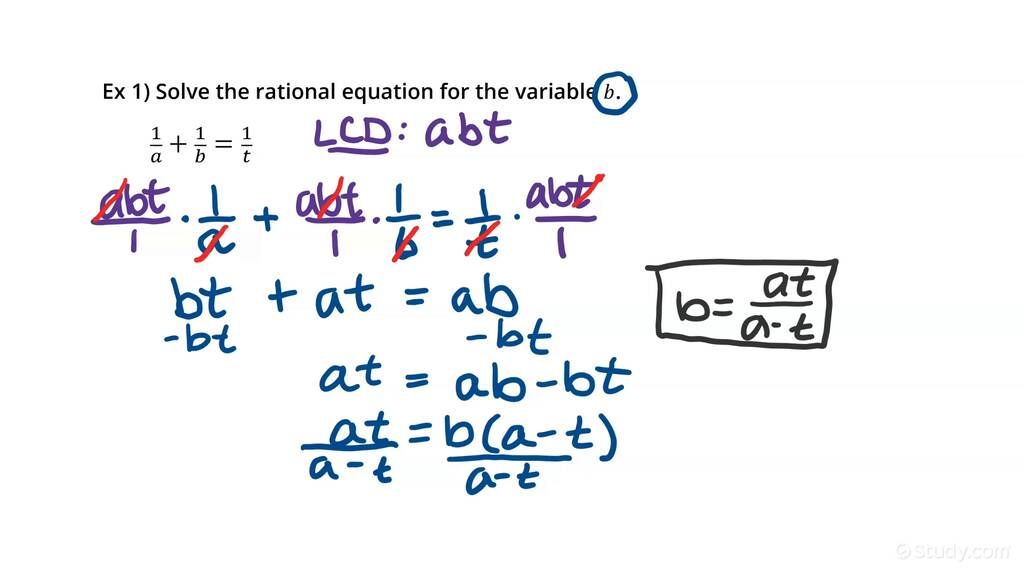 Ex 1) Solve the rational equation for the variable b.
1/a + 1/b = 1/t
LCD: abt
abt/1 · 1/a + abt/1 · 1/b = 1/t · abt/1
bt + at = ab
-bt -bt
at = ab - bt
at/a-t = b(a-t)/a-t
b = at/a-t
Study.com